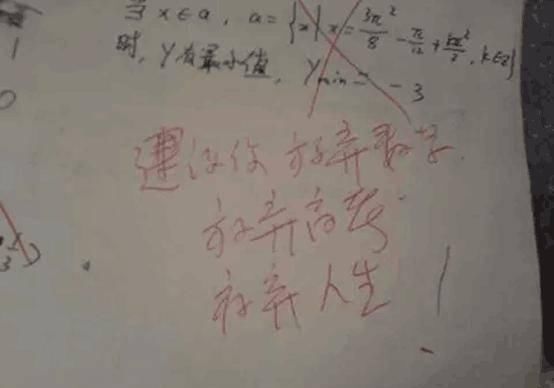 当 x∈a, a={x|x=3π²/8 - π/12 + kπ²/2, k∈z}
时, y有最小值, Ymin = -3
1
0
建议你放弃数学.
放弃高考
放弃人生!